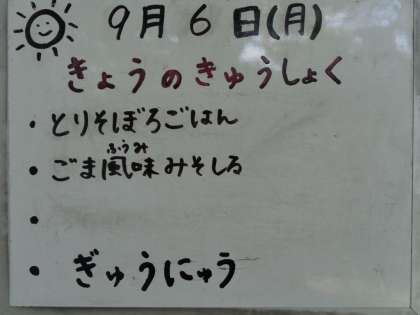 9月6日(月)
きょうのきゅうしょく
・とりそぼろごはん
・ごま風味みそしる
ふうみ
・
・ぎゅうにゅう